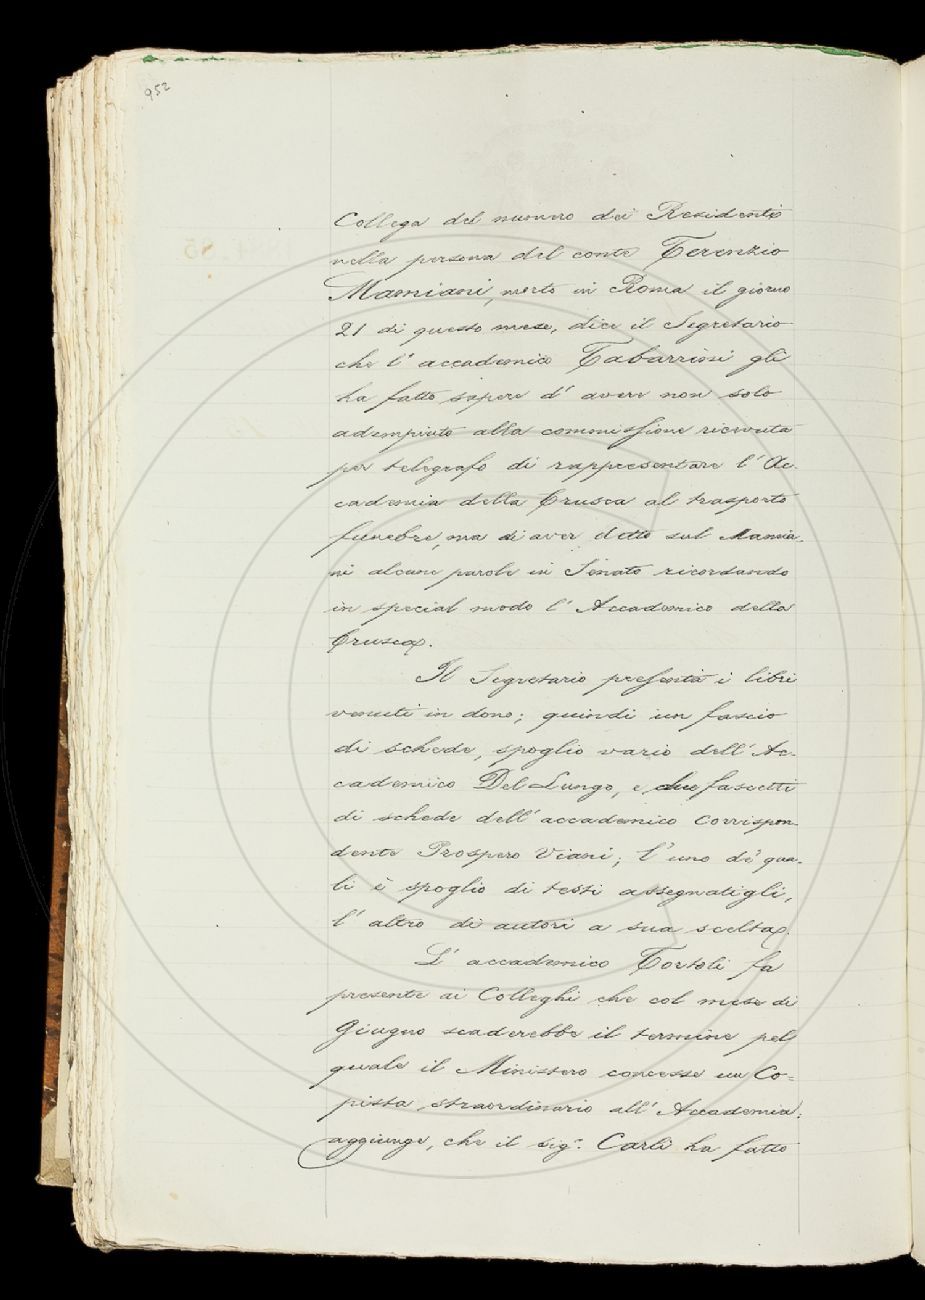 952
Collega del numero dei Residenti
nella persona del conte Terenzio
Mamiani, morto in Roma il giorno
21 di questo mese, dice il Segretario
che l'accademico Tabarrini gli
ha fatto sapere d'avere non solo
adempiuto alla commissione ricevuta
per telegrafo di rappresentare l'Ac-
cademia della Crusca al trasporto
funebre, ma di aver detto sul Mamia-
ni alcune parole in Senato ricordando
in special modo l'Accademico della
Crusca.
Il Segretario presenta i libri
venuti in dono; quindi un fascio
di schede, spoglio vario dell'Ac-
cademico Del Lungo, e due fascetti
di schede dell'accademico corrispon-
dente Prospero Viani; l'uno de' qua-
li è spoglio di testi assegnatigli,
l'altro di autori a sua scelta.
L'accademico Tortoli fa
presente ai Colleghi che col mese di
Giugno scaderebbe il termine pel
quale il Ministero concesse un Co-
pista straordinario all'Accademia;
aggiunge, che il sig.r Carli ha fatto